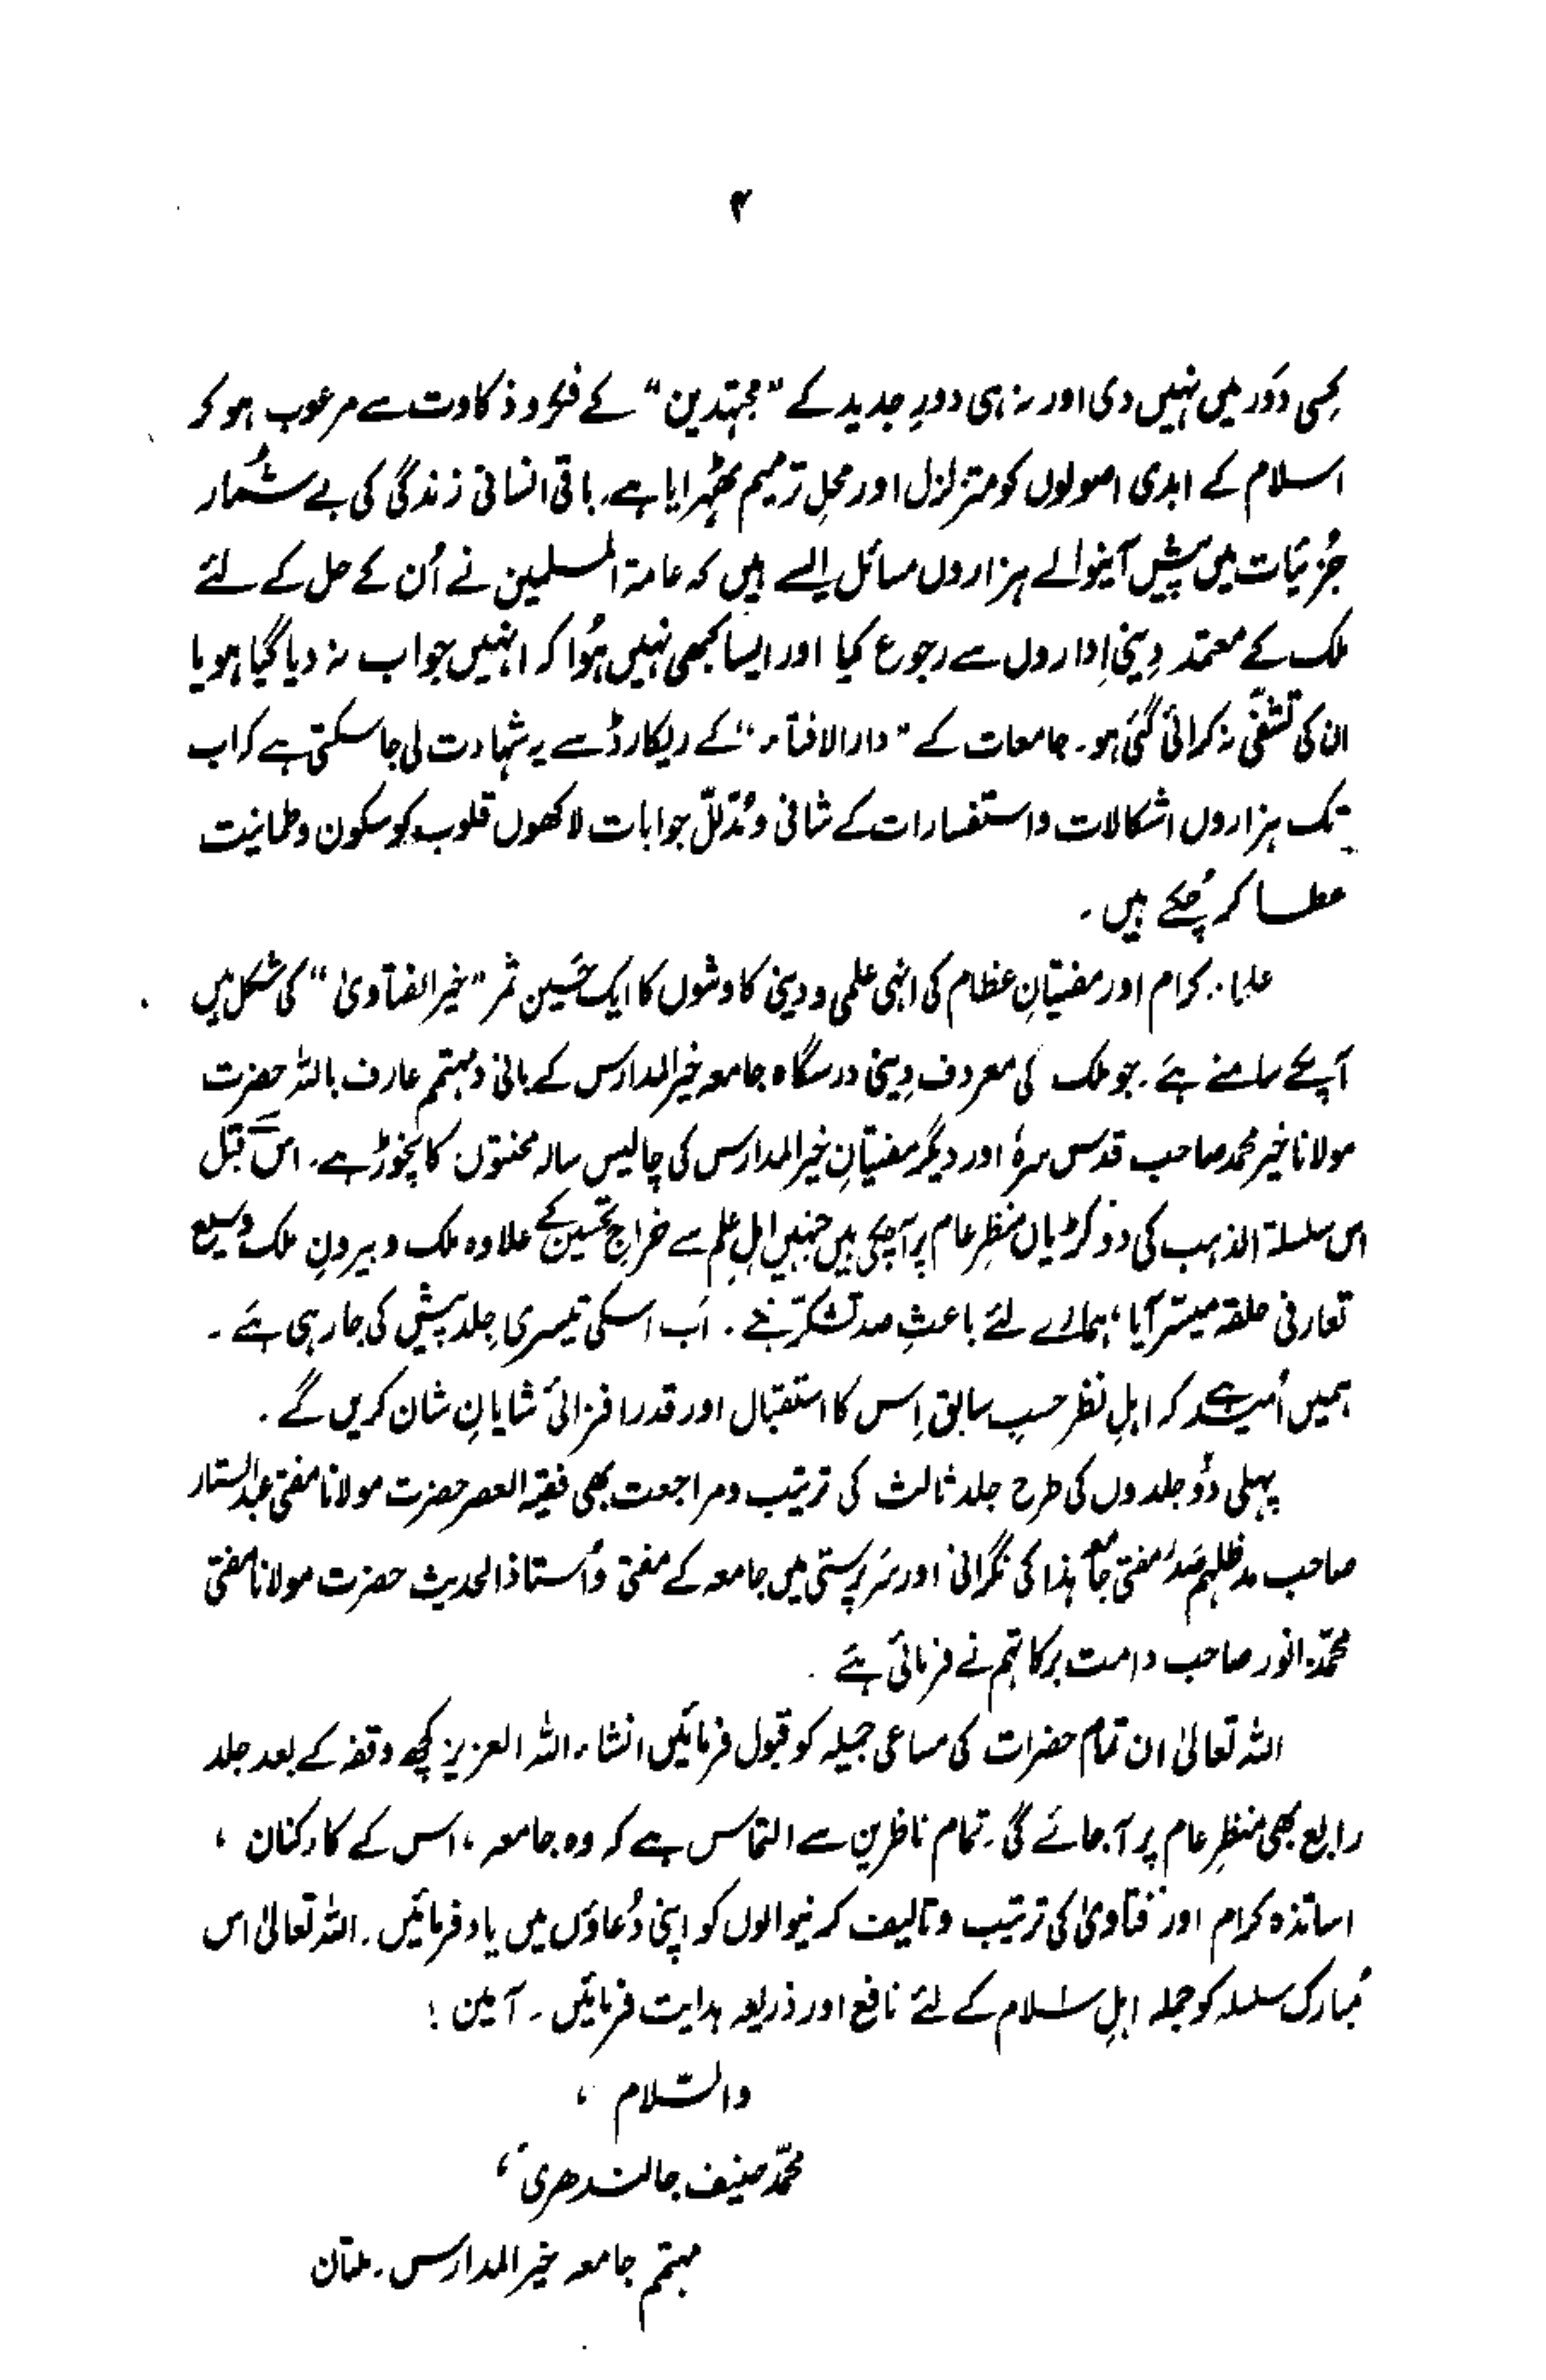 ۲
کِسی دَور میں نہیں دی اور نہ ہی دورِ جدید کے "مجتہدین" کے فکر و ذکاوت سے مرعوب ہو کر
اسلام کے ابدی اصولوں کو متزلزل اور محلِ ترمیم ٹھہرایا ہے۔ باقی انسانی زندگی کی بے شُمار
جُزئیات میں پیش آنیوالے ہزاروں مسائل ایسے ہیں کہ عامۃ المسلمین نے اُن کے حل کے لئے
ملک کے معتمد دِینی اِداروں سے رجوع کیا اور ایسا کبھی نہیں ہُوا کہ انہیں جواب نہ دیا گیا ہو یا
ان کی تشفّی نہ کرائی گئی ہو۔ جامعات کے "دارالافتاء" کے ریکارڈ سے یہ شہادت لی جا سکتی ہے کہ اب
تک ہزاروں اشکالات و استفسارات کے شافی و مُدَلّل جوابات لاکھوں قلوب کو سکون و طمانیت
عطا کر چُکے ہیں۔
علماء کرام اور مفتیانِ عظام کی انہی علمی و دینی کاوشوں کا ایک حَسین ثمر "خیر الفتاویٰ" کی شکل میں
آپکے سامنے ہَے۔ جو ملک کی معروف دِینی درسگاہ جامعہ خیر المدارس کے بانی و مہتمم عارف باللہ حضرت
مولانا خیر محمد صاحب قدس سرہٗ اور دیگر مفتیانِ خیر المدارس کی چالیس سالہ محنتوں کا نچوڑ ہے۔ اس سے قبل
اس سلسلۃ الذہب کی دو کڑیاں منظرِ عام پر آ چکی ہیں جنہیں اہلِ عِلم سے خراجِ تحسین کے علاوہ ملک و بیرونِ ملک وسیع
تعارفی حلقہ میسّر آیا، ہمارے لئے باعثِ صد تشکّر ہَے۔ اَب اسکی تیسری جِلد پیش کی جا رہی ہَے۔
ہمیں اُمید ہے کہ اہلِ نظر حسبِ سابق اِس کا استقبال اور قدر افزائی شایانِ شان کریں گے۔
پہلی دُو جلدوں کی طرح جلد ثالث کی ترتیب و مراجعت بھی فقیہ العصر حضرت مولانا مفتی عبدالستار
صاحب مدظلہم صَدر مفتی جامعہ ہٰذا کی نگرانی اور سَرپرستی میں جامعہ کے مفتی و اُستاذ الحدیث حضرت مولانا مفتی
محمّد انور صاحب دامت برکاتہم نے فرمائی ہَے
اللہ تعالیٰ ان تمام حضرات کی مساعی جمیلہ کو قبول فرمائیں انشاء اللہ العزیز کچھ وقفہ کے بعد جلد
رابع بھی منظرِ عام پر آ جائے گی۔ تمام ناظرین سے التماس ہے کہ وہ جامعہ، اس کے کارکنان،
اساتذہ کرام اور فتاویٰ کی ترتیب و تالیف کرنیوالوں کو اپنی دُعاؤں میں یاد فرمائیں۔ اللہ تعالیٰ اس
مُبارک سلسلہ کو جملہ اہلِ اسلام کے لئے نافع اور ذریعہ ہدایت فرمائیں۔ آمین !
والسّلام،
محمّد حنیف جالندھری،
مہتمم جامعہ خیر المدارس۔ ملتان